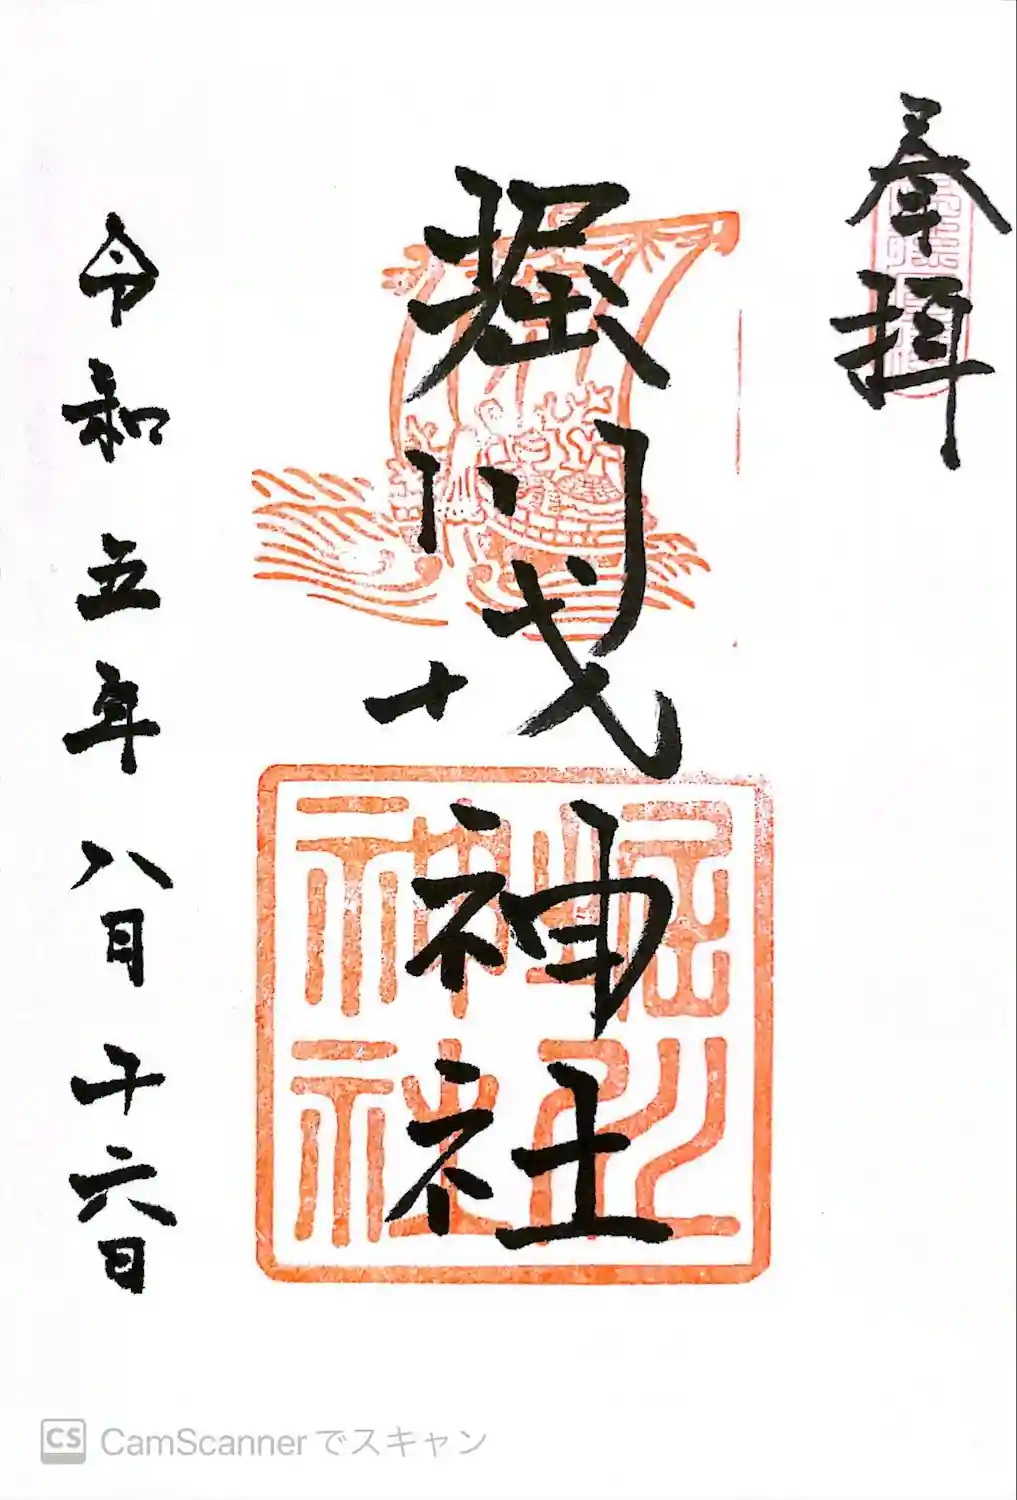 奉拝
堀川戎神社
堀川
神社
令和五年八月十六日
CS CamScannerでスキャン